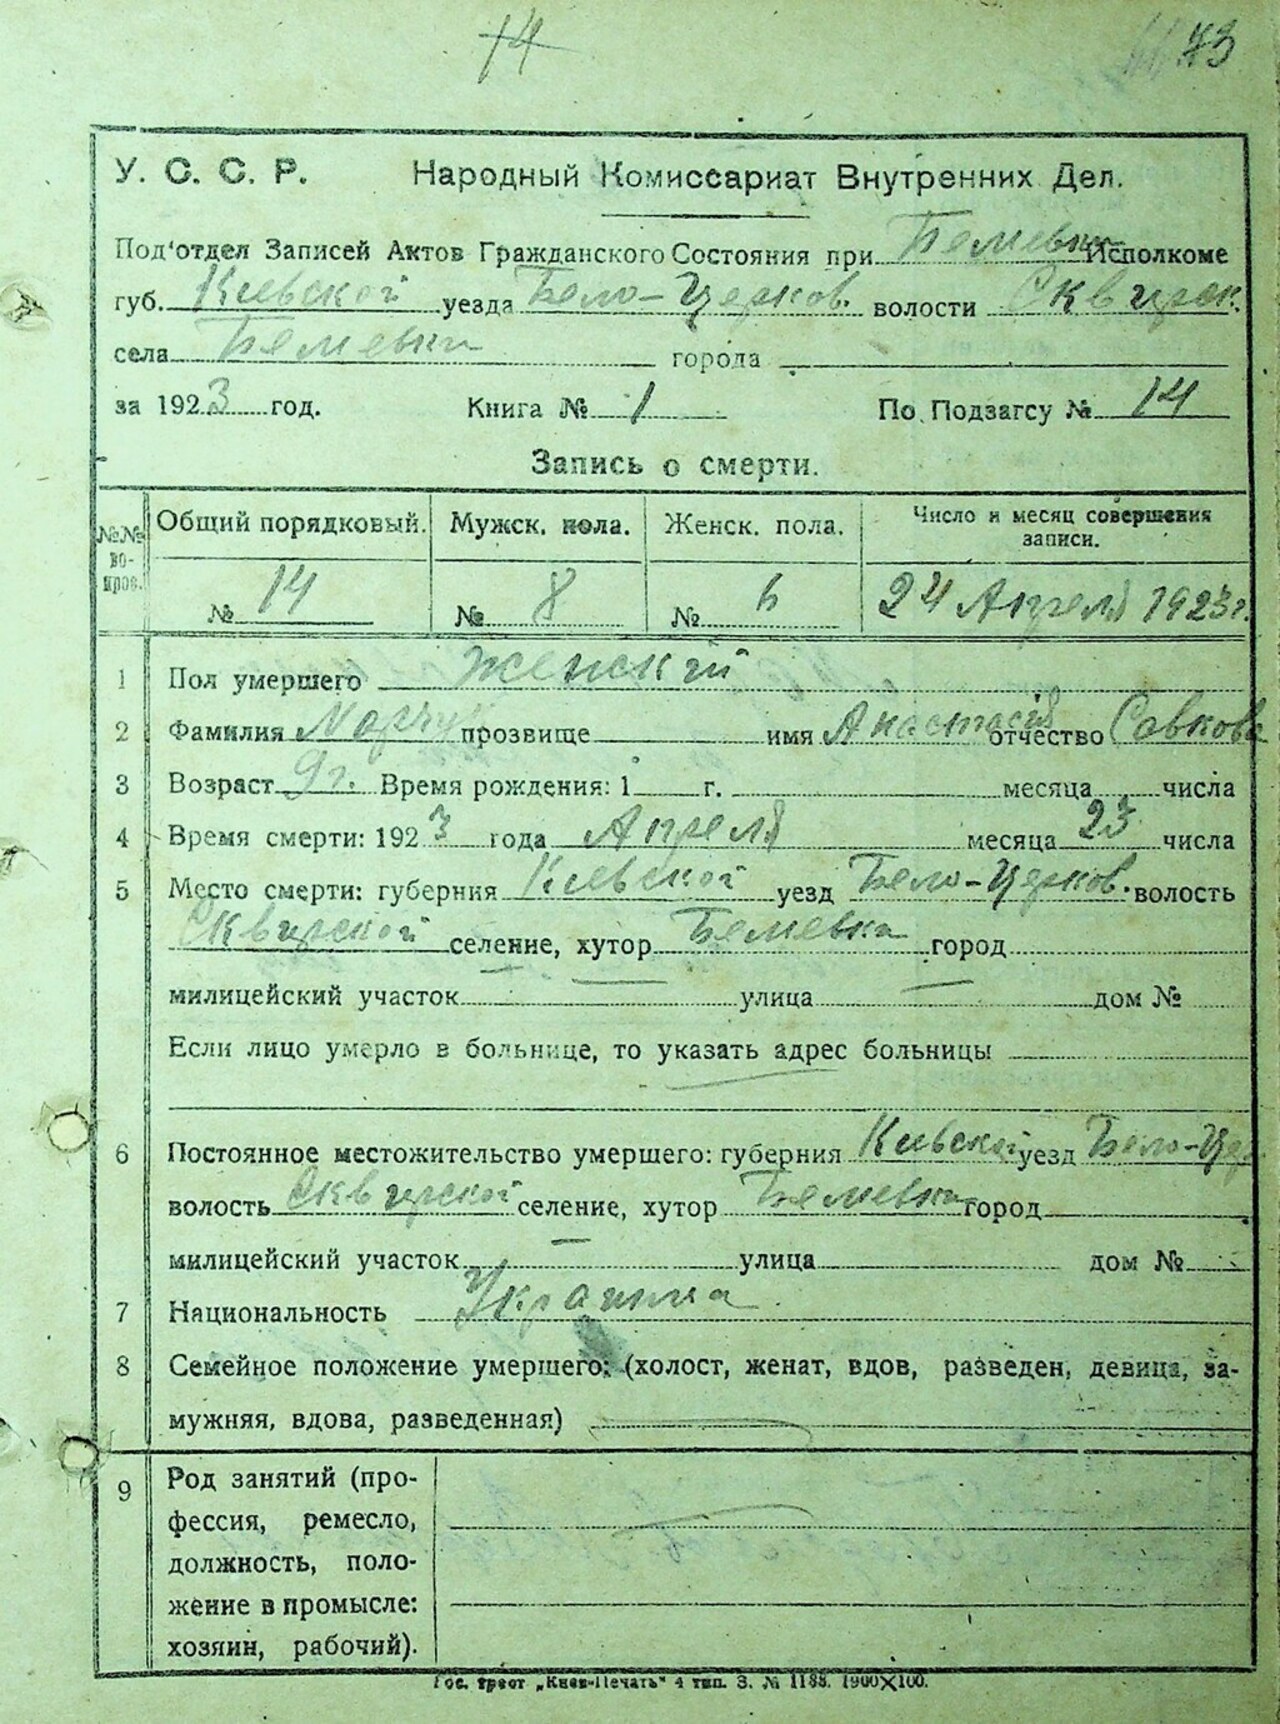 14
73
У. С. С. Р. Народный Комиссариат Внутренних Дел.
Под'отдел Записей Актов Гражданского Состояния при Исполкоме
губ. Киевской уезда Бело-Церков. волости Сквирск.
села города
за 1923 год. Книга № 1 По Подзагсу № 14
Запись о смерти.
№№ во-прос. Общий порядковый. Мужск. пола. Женск. пола. Число и месяц совершения записи.
№ 14 № 8 № 6 24 Апреля 1923 г.
1 Пол умершего Женский
2 Фамилия прозвище имя Анастасия отчество Савкова
3 Возраст 9 г. Время рождения: 1 г. месяца числа
4 Время смерти: 1923 года Апреля месяца 23 числа
5 Место смерти: губерния Киевской уезд Бело-Церков. волость
Сквирской селение, хутор город
милицейский участок — улица — дом №
Если лицо умерло в больнице, то указать адрес больницы
6 Постоянное местожительство умершего: губерния Киевской уезд Бело-Цер
волость Сквирской селение, хутор город
милицейский участок — улица дом №
7 Национальность
8 Семейное положение умершего: (холост, женат, вдов, разведен, девица, за-
мужняя, вдова, разведенная)
9 Род занятий (про-
фессия, ремесло,
должность, поло-
жение в промысле:
хозяин, рабочий).
Гос. трест „Киев-Печать" 4 тип. З. № 1188. 1900×100.